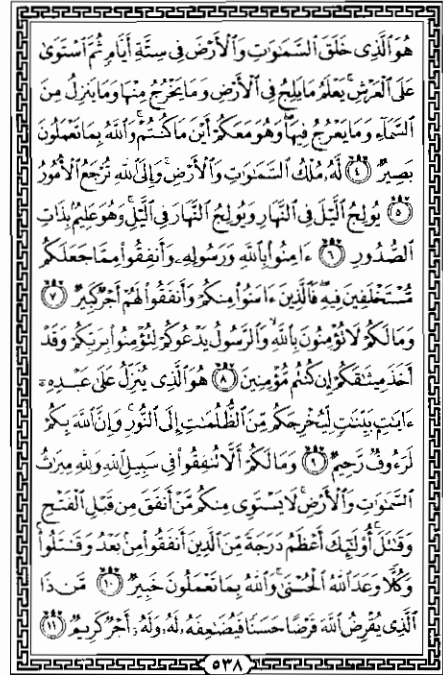 هُوَ ٱلَّذِى خَلَقَ ٱلسَّمَٰوَٰتِ وَٱلْأَرْضَ فِى سِتَّةِ أَيَّامٍ ثُمَّ ٱسْتَوَىٰ
عَلَى ٱلْعَرْشِ ۚ يَعْلَمُ مَا يَلِجُ فِى ٱلْأَرْضِ وَمَا يَخْرُجُ مِنْهَا وَمَا يَنزِلُ مِنَ
ٱلسَّمَآءِ وَمَا يَعْرُجُ فِيهَا ۖ وَهُوَ مَعَكُمْ أَيْنَ مَا كُنتُمْ ۚ وَٱللَّهُ بِمَا تَعْمَلُونَ
بَصِيرٌ ٤ لَّهُۥ مُلْكُ ٱلسَّمَٰوَٰتِ وَٱلْأَرْضِ ۚ وَإِلَى ٱللَّهِ تُرْجَعُ ٱلْأُمُورُ
٥ يُولِجُ ٱلَّيْلَ فِى ٱلنَّهَارِ وَيُولِجُ ٱلنَّهَارَ فِى ٱلَّيْلِ ۚ وَهُوَ عَلِيمٌۢ بِذَاتِ
ٱلصُّدُورِ ٦ ءَامِنُوا۟ بِٱللَّهِ وَرَسُولِهِۦ وَأَنفِقُوا۟ مِمَّا جَعَلَكُم
مُّسْتَخْلَفِينَ فِيهِ ۖ فَٱلَّذِينَ ءَامَنُوا۟ مِنكُمْ وَأَنفَقُوا۟ لَهُمْ أَجْرٌ كَبِيرٌ ٧
وَمَا لَكُمْ لَا تُؤْمِنُونَ بِٱللَّهِ ۙ وَٱلرَّسُولُ يَدْعُوكُمْ لِتُؤْمِنُوا۟ بِرَبِّكُمْ وَقَدْ
أَخَذَ مِيثَٰقَكُمْ إِن كُنتُم مُّؤْمِنِينَ ٨ هُوَ ٱلَّذِى يُنَزِّلُ عَلَىٰ عَبْدِهِۦٓ
ءَايَٰتٍۭ بَيِّنَٰتٍ لِّيُخْرِجَكُم مِّنَ ٱلظُّلُمَٰتِ إِلَى ٱلنُّورِ ۚ وَإِنَّ ٱللَّهَ بِكُمْ
لَرَءُوفٌ رَّحِيمٌ ٩ وَمَا لَكُمْ أَلَّا تُنفِقُوا۟ فِى سَبِيلِ ٱللَّهِ وَلِلَّهِ مِيرَٰثُ
ٱلسَّمَٰوَٰتِ وَٱلْأَرْضِ ۚ لَا يَسْتَوِى مِنكُم مَّنْ أَنفَقَ مِن قَبْلِ ٱلْفَتْحِ
وَقَٰتَلَ ۚ أُو۟لَٰٓئِكَ أَعْظَمُ دَرَجَةً مِّنَ ٱلَّذِينَ أَنفَقُوا۟ مِنۢ بَعْدُ وَقَٰتَلُوا۟ ۚ
وَكُلًّا وَعَدَ ٱللَّهُ ٱلْحُسْنَىٰ ۚ وَٱللَّهُ بِمَا تَعْمَلُونَ خَبِيرٌ ١٠ مَّن ذَا
ٱلَّذِى يُقْرِضُ ٱللَّهَ قَرْضًا حَسَنًا فَيُضَٰعِفَهُۥ لَهُۥ وَلَهُۥٓ أَجْرٌ كَرِيمٌ ١١
٥٣٨